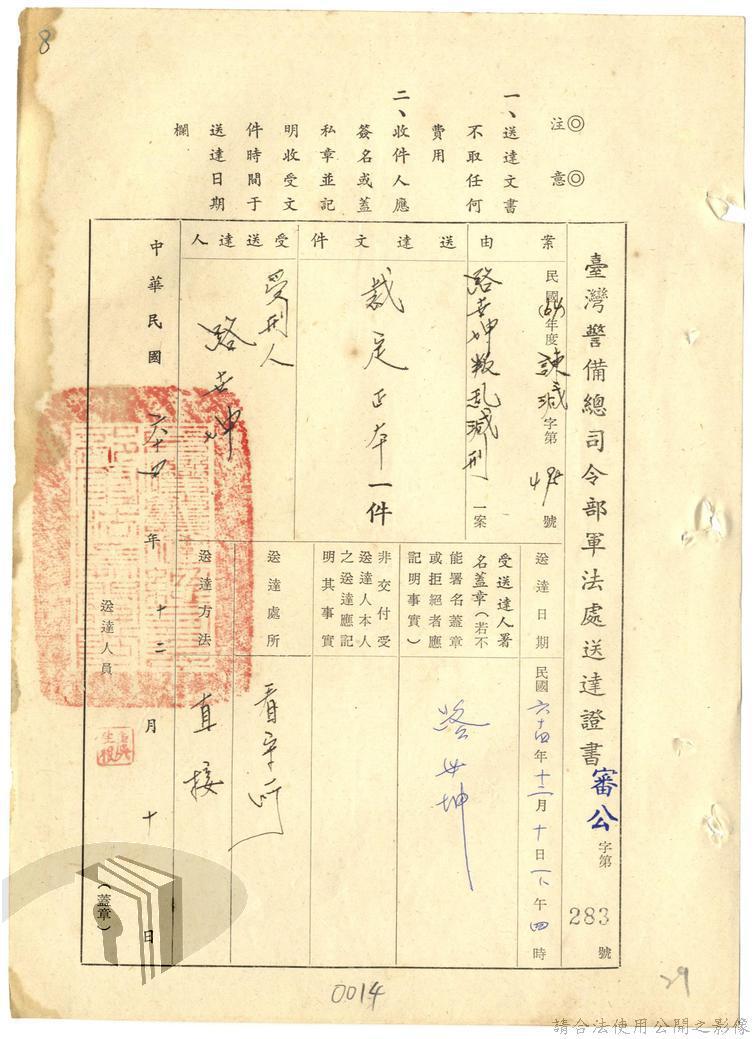 8
注意
一、送達文書
不取任何
費用
二、收件人應
簽名或蓋
私章並記
明收受文
件時間于
送達日期
欄
臺灣警備總司令部軍法處送達證書審公字第283號
案由
民國(64)年度諫減字第495號
路世坤叛乱減刑一案
送達文件
裁定正本一件
受送達人
受刑人
路世坤
送達日期
民國六十四年十二月十日下午四時
受送達人署
名蓋章(若不
能署名蓋章
或拒絕者應
記明事實)
路世坤
非交付受
送達人本人
之送達應記
明其事實
送達處所
看守所
送達方法
直接
中華民國六十四年十二月十日
送達人員
(蓋章)
0014
29
請合法使用公開之影像